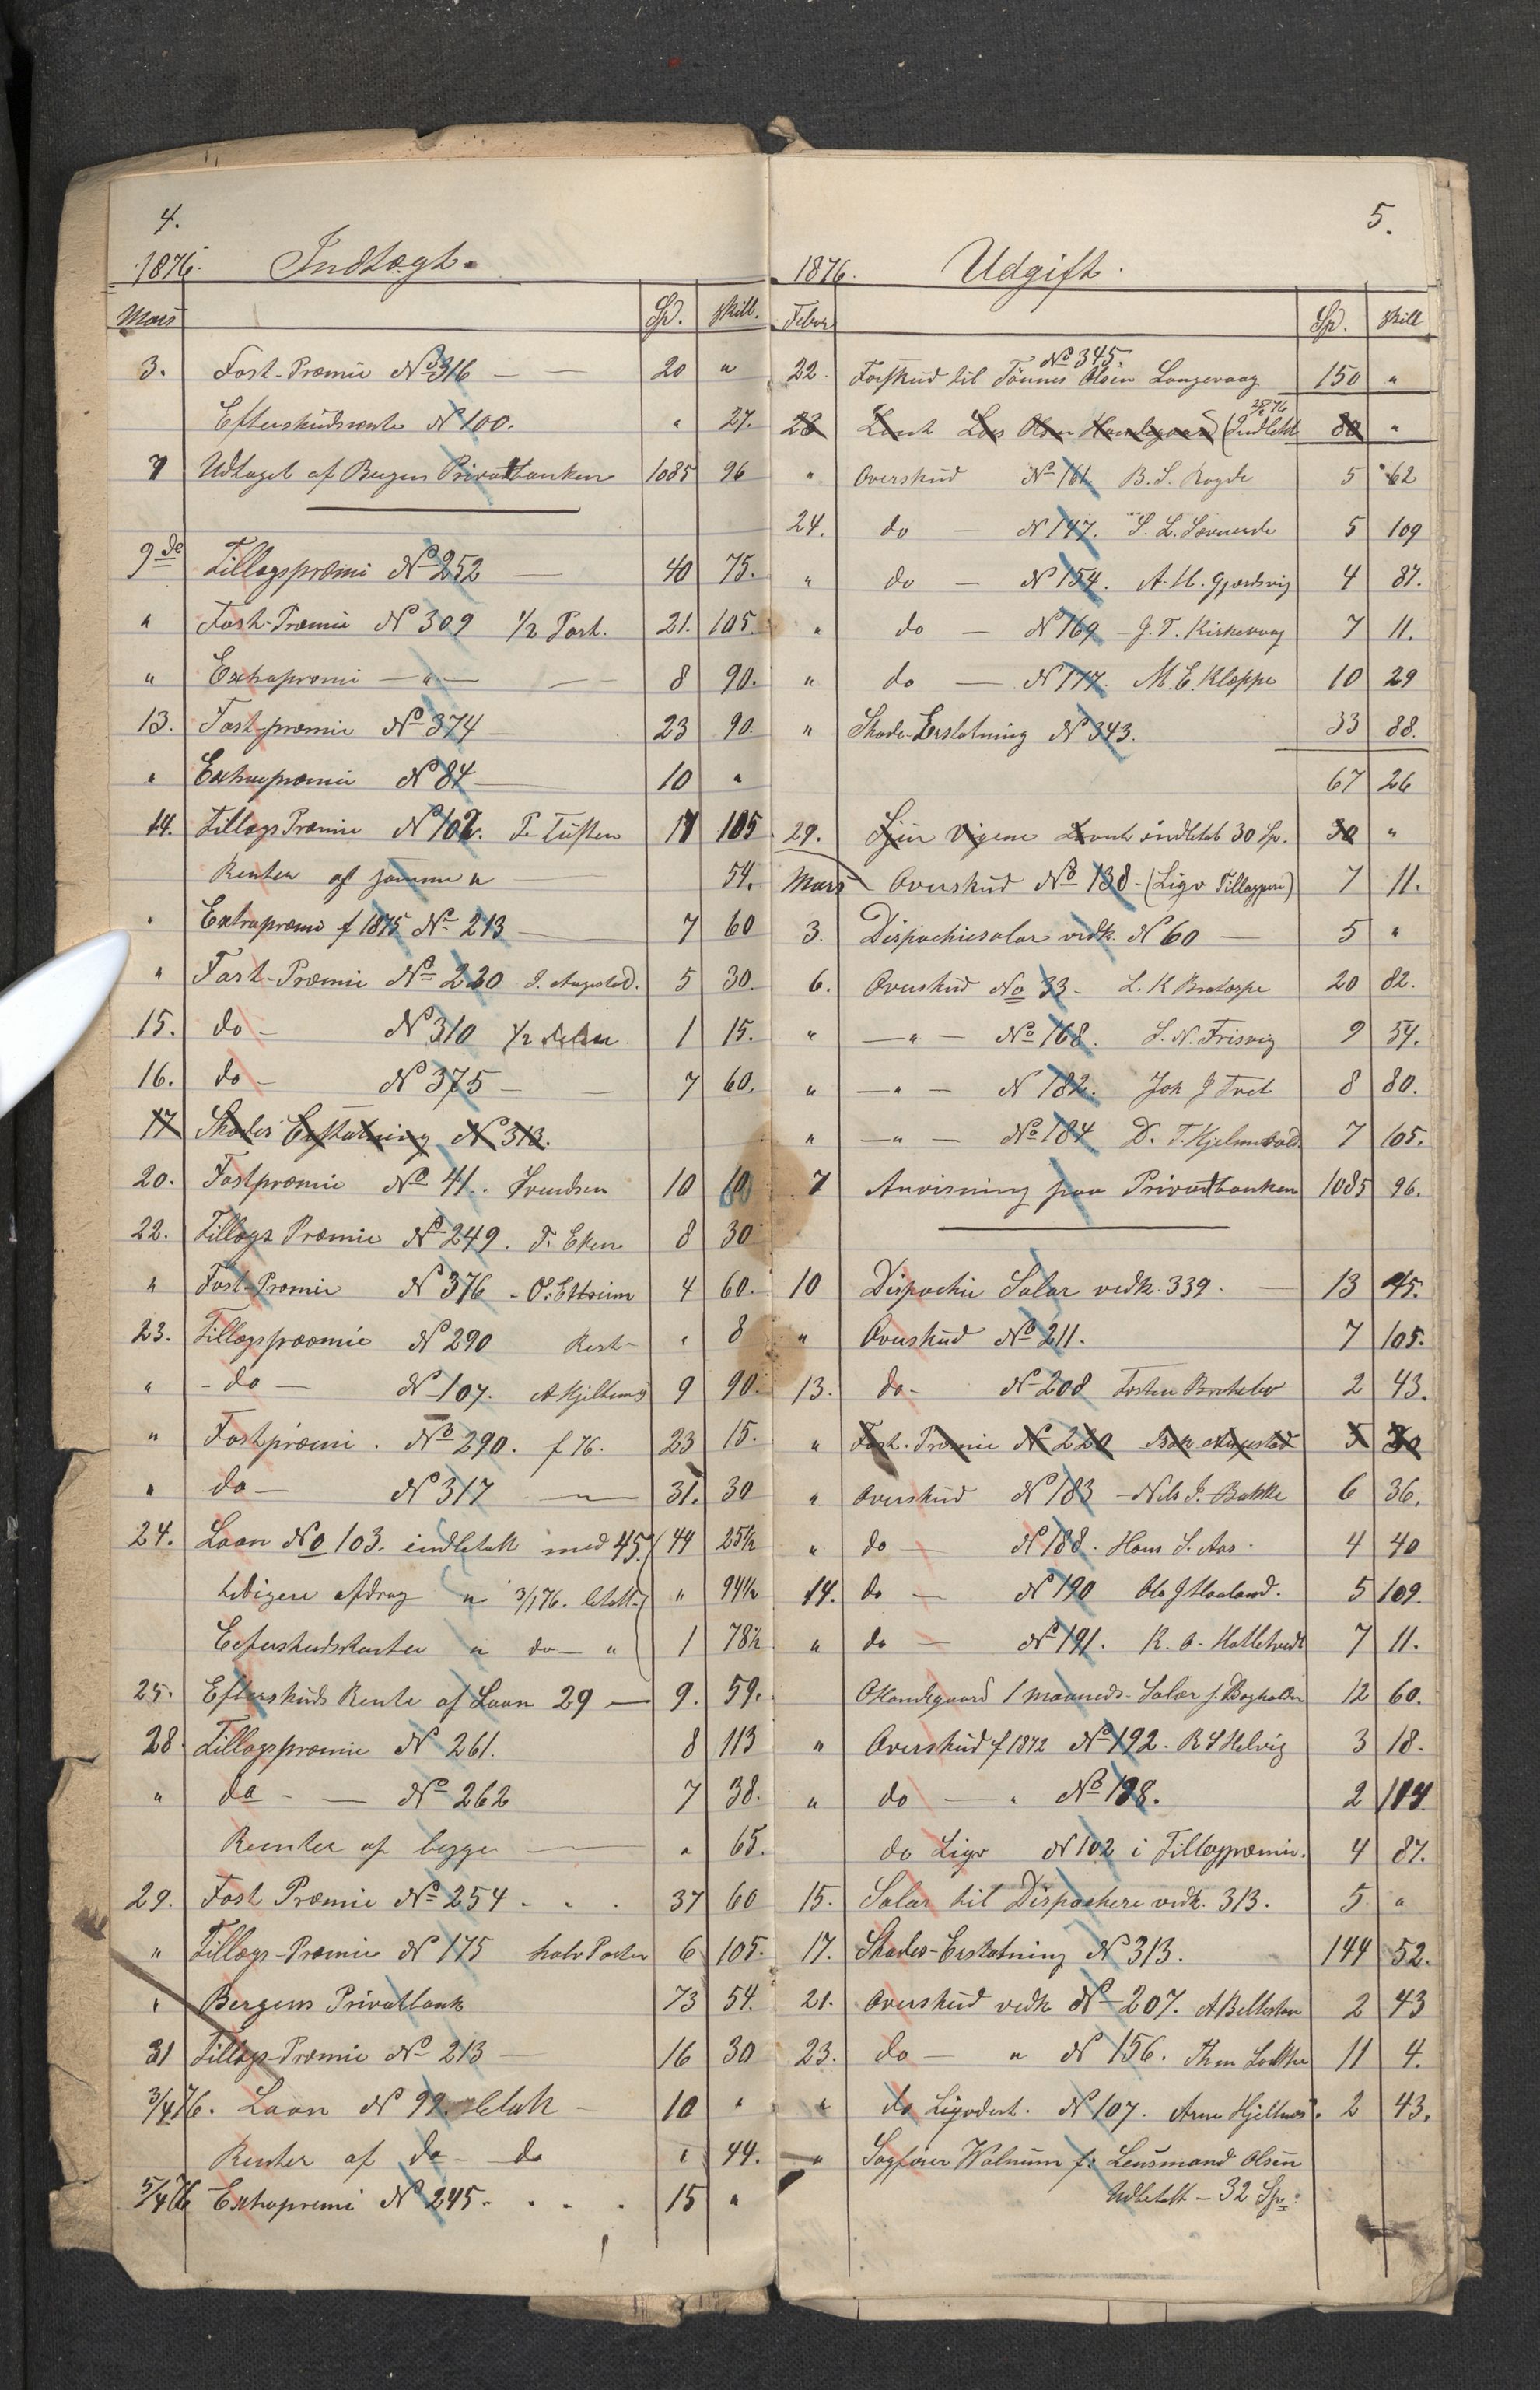 4.
1876. Indtægt.
Mars Sp. skill.
3. Fast-Præmie No 316 — — 20 "
Efterskudsrente N 100. " 27.
7 Udtaget af Bergens Privatbanken 1085 96
9de Tillægspræmi No 252 — 40 75.
" Fast-Præmie N 309 1/2 Part. 21. 105.
" Extrapræmi — " — — 8 90.
13. Fast-præmie No 374 — 23 90.
" Extrapræmie N 84 — 10 "
14. Tillægs Præmie N 102. P. Tuften 17 105
Renter af samme " 54.
" Extrapræmi f 1875 No 213 — 7 60
" Fast-Præmie No 220 J. Augestad. 5 30.
15. do — N 310 1/2 1 15.
16. do — N 375 — — 7 60.
17 Skades Erstatning N 313.
20. Fastpræmie No 41. Svendsen 10 60
22. Tillægs Præmie No 249. T. Eken 8 30
" Fast-Præmie N 376 - O. Ettreim 4 60.
23. Tillægspræmie N 290 Rest- " 8
" - do — N 107. A Hjeltnes 9 90.
" Fastpræmi. No 290. f 76. 23 15.
" do — N 317 — 31. 30
24. Laan No 103. indbetalt med 45. 44 25 1/2
tidligere afdrag " 3/1 76. betalt " 94 1/2
Efterskudsrenter " do — " 1 78 1/2
25. Efterskuds Rente af Laan 29 — 9. 59.
28. Tillægspræmie N 261. 8 113
" do - — No 262 7 38.
Renter af begge — " 65.
29. Fast Præmie No 254 . . . 37 60
" Tillægs-Præmie N 175 halv Parten 6 105.
" Bergens Privatbank 73 54.
31 Tillægs-Præmie No 213 — 16 30
3/4 76. Laan N 99. betalt — 10 "
Renter af do — do " 44.
5/4 76 Extrapremi N 245. . . . 15 "
5.
1876. Udgift.
Febr Sp. skill
No 345.
22. Forskud til Tönnes Olsen Langevaag 150 "
28/2 76
23 Laant Lars Olsen Handegaard (Indbetalt 80 "
" Overskud No 161. B. S. Rogde 5 62
24. do — N 147. S. L. 5 109
" do — N 154. A. H. Gjærdsvig 4 87.
" do — N 169 — J. T. Kirkevaag 7 11.
" do — N 117. M. E. Kleppe 10 29
" Skade-Erstatning N 343. 33 88.
67 26
29. Sjur Vigene Laant indbetalt 30 Sp. 30 "
Mars Overskud No 138 - (Ligv Tillægpræ) 7 11.
3. Dispachesalar vedk. N 60 — 5 "
6. Overskud No 33 — L. K Bratespe 20 82.
" — " — No 168. L. N. Frisvig 9 54.
" — " — N 182. Joh J Tvet 8 80.
" — " — No 184 D. T. Hjelmevold 7 105.
7 Anvisning paa Privatbanken 1085 96.
10 Dispache Salar vedk. 339. — 13 45.
" Overskud No 211. 7 105.
13. do — No 208 Torsten 2 43.
" Fast-Præmie N 220 Augestad 5 30
" Overskud N 183 — Nils J. Bakke 6 36.
" do — N 188. Hans S. Aas. 4 40
14. do — N 190 Ole J Haaland. 5 109.
" do — No 191. K. O. Halletvedt 7 11.
O Handegaard 1 maaneds-Salar f. Bogholder 12 60.
" Overskud f 1872 No 192. R S Helvig 3 18.
" do — " No 198. 2 114.
do Ligv N 102 i Tillægpræmie. 4 87.
15. Salar til Dispachere vedk. 313. 5 "
17. Skades-Erstatning N 313. 144 52.
21. Overskud vedk No 207. A 2 43
23. do — " N 156. Thm 11 4.
" do Ligvdert. N 107. Arne Hjeltnes. 2 43.
" Sagförer Walnum f: Lensmand Olsen
Udbetalt — 32 Sp.